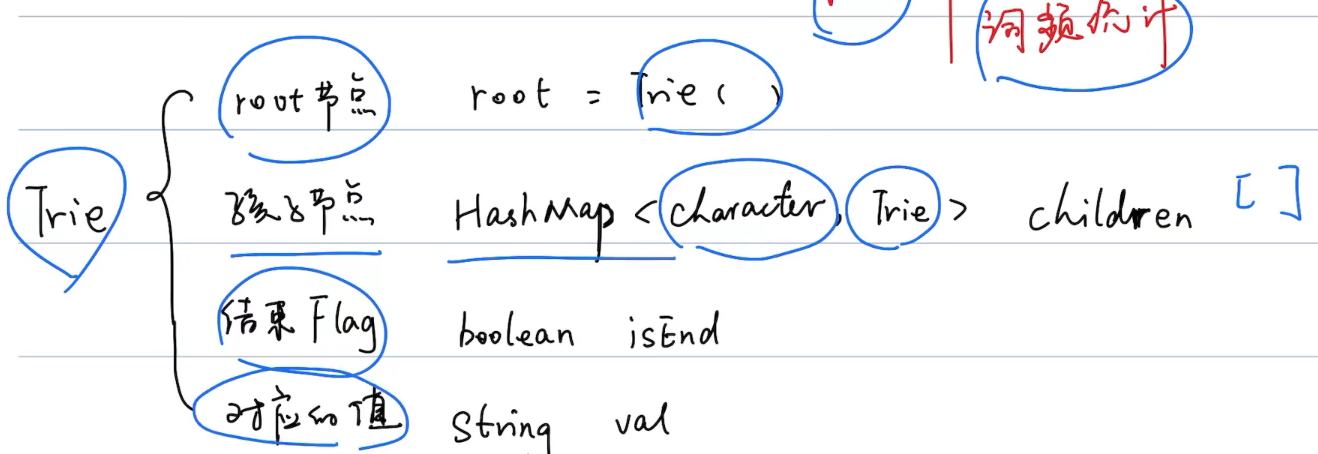 词频统计
root节点 root = Trie()
Trie
孩子节点 HashMap <character, Trie> children []
结束Flag boolean isEnd
对应的值 String val